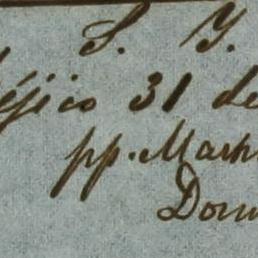 S. Y.
éjico 31 de
pp. Mar
Dom